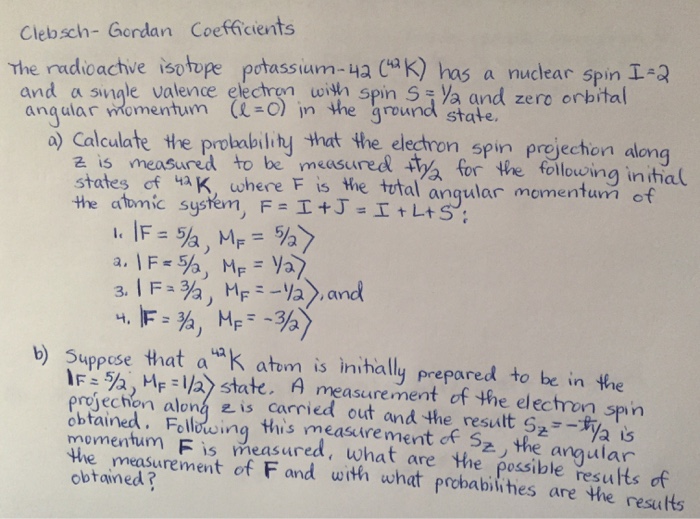 Clebsch-Gordan Coefficients
The radioactive isotope potassium-42 (⁴²K) has a nuclear spin I=2
and a single valence electron with spin S=1/2 and zero orbital
angular momentum (ℓ=0) in the ground state.
a) Calculate the probability that the electron spin projection along
z is measured to be measured +ħ/2 for the following initial
states of ⁴²K, where F is the total angular momentum of
the atomic system, F = I + J = I + L + S:
1. |F = 5/2, M_F = 5/2⟩
2. |F = 5/2, M_F = 1/2⟩
3. |F = 3/2, M_F = -1/2⟩, and
4. |F = 3/2, M_F = -3/2⟩
b) Suppose that a ⁴²K atom is initially prepared to be in the
|F = 5/2, M_F = 1/2⟩ state. A measurement of the electron spin
projection along z is carried out and the result S_z = -ħ/2 is
obtained. Following this measurement of S_z, the angular
momentum F is measured. What are the possible results of
the measurement of F and with what probabilities are the results
obtained?